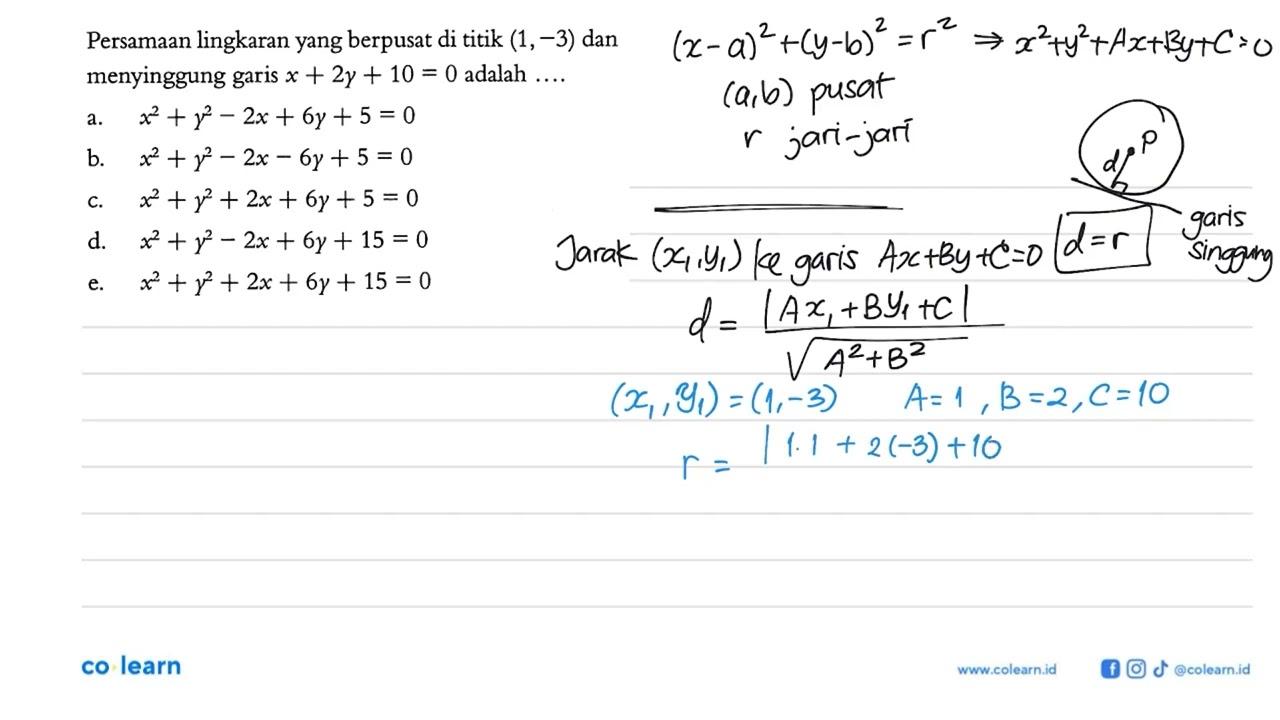 Persamaan lingkaran yang berpusat di titik (1, −3) dan
menyinggung garis x + 2y + 10 = 0 adalah ....
a. x² + y² − 2x + 6y + 5 = 0
b. x² + y² − 2x − 6y + 5 = 0
c. x² + y² + 2x + 6y + 5 = 0
d. x² + y² − 2x + 6y + 15 = 0
e. x² + y² + 2x + 6y + 15 = 0
(x-a)² + (y-b)² = r² ⇒ x²+y²+Ax+By+C=0
(a,b) pusat
r jari-jari
d P
garis
singgung
Jarak (x₁,y₁) ke garis Ax+By+C=0 d=r
d = |Ax₁+By₁+C| / √A²+B²
(x₁,y₁) = (1,-3) A=1, B=2, C=10
r = |1.1 + 2(-3)+10
co learn
www.colearn.id @colearn.id